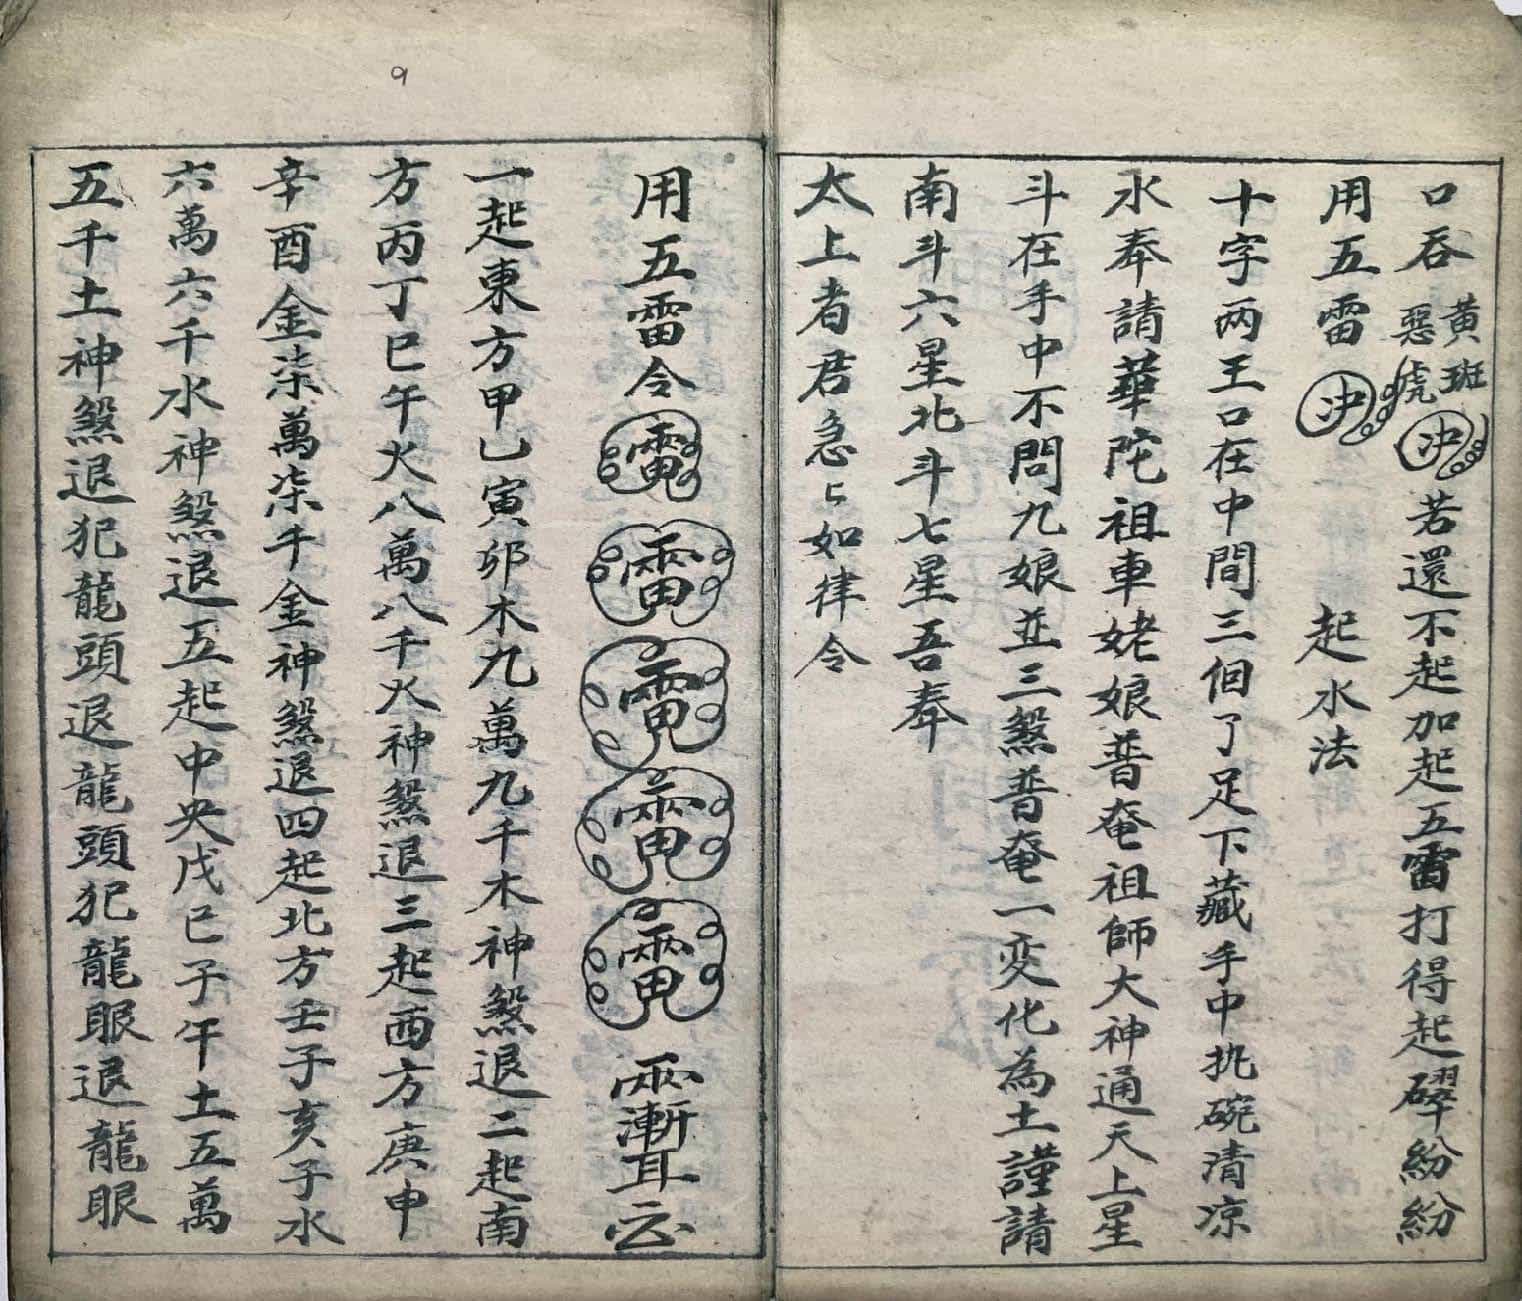 口吞黃斑惡虎沖若還不起加起五雷打得起碎紛紛
用五雷沖 起水法
十字两王口在中間三個了足下藏手中执碗清凉
水奉請華陀祖車姥娘普奄祖師大神通天上星
斗在手中不問九娘並三煞普奄一变化為土謹請
南斗六星北斗七星吾奉
太上老君急〻如律令
用五雷令
一起東方甲乙寅卯木九萬九千木神煞退二起南
方丙丁巳午火八萬八千火神煞退三起西方庚申
辛酉金柒萬柒千金神煞退四起北方壬子亥子水
六萬六千水神煞退五起中央戊己子午土五萬
五千土神煞退犯龍頭退龍頭犯龍眼退龍眼
9